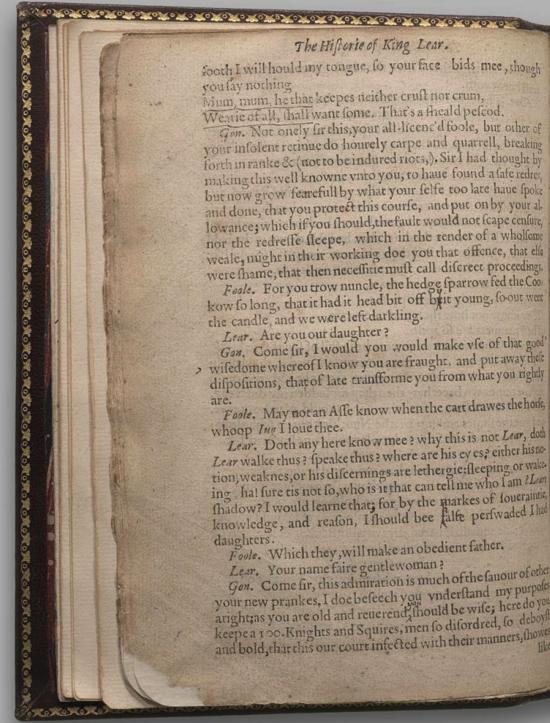 The Historie of King Lear.
sooth I will hould my tongue, so your face bids mee, though
you say nothing
Mum, mum, he that keepes neither crust nor crum,
Wearie of all, shall want some. That's a sheald pescod.
Gon. Not onely sir this, your all-licenc'd foole, but other of
your insolent retinue do hourely carpe and quarrell, breaking
forth in ranke & (not to be indured riots,). Sir I had thought by
making this well knowne vnto you, to haue found a safe redres,
but now grow fearefull by what your selfe too late haue spoke
and done, that you protect this course, and put on by your al-
lowance; which if you should, the fault would not scape censure,
nor the redresse sleepe, which in the tender of a wholsome
weale, might in their working doe you that offence, that else
were shame, that then necessitie must call discreet proceedings.
Foole. For you trow nuncle, the hedge sparrow fed the Coo-
kow so long, that it had it head bit off by it young, so out went
the candle, and we were left darkling.
Lear. Are you our daughter?
Gon. Come sir, I would you would make vse of that good
wisedome whereof I know you are fraught, and put away these
dispositions, that of late transforme you from what you rightly
are.
Foole. May not an Asse know when the cart drawes the horse,
whoop Iug I loue thee.
Lear. Doth any here know mee? why this is not Lear, doth
Lear walke thus? speake thus? where are his eyes? either his no-
tion, weaknes, or his discernings are lethergie; sleeping or wake-
ing ha! sure tis not so, who is it that can tell me who I am? Lears
shadow? I would learne that; for by the markes of soueraintie,
knowledge, and reason, I should bee false perswaded I had
daughters.
Foole. Which they, will make an obedient father.
Lear. Your name faire gentlewoman?
Gon. Come sir, this admiration is much of the sauour of other
your new prankes, I doe beseech you vnderstand my purposes
aright; as you are old and reuerend, you should be wise; here do you
keepe a 100. Knights and Squires, men so disordred, so deboyst
and bold, that this our court infected with their manners, showes
like